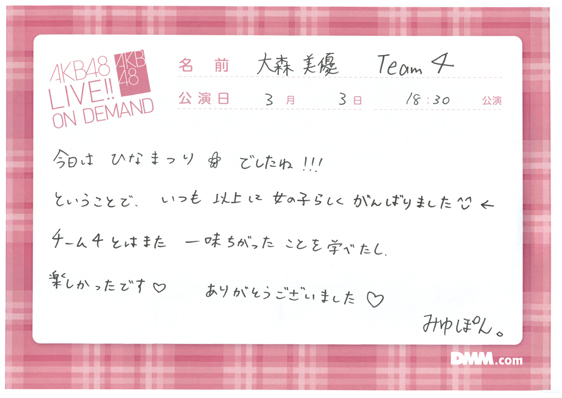 AKB48
LIVE!!
ON DEMAND
AKB
48
名前 大森美優 Team 4
公演日 3月 3日 18:30 公演
今日は ひなまつり でしたね!!!
ということで、いつも 以上に 女の子らしく がんばりました ←
チーム4 とはまた 一味ちがった ことを学べたし、
楽しかったです♡ ありがとうございました♡
みゆぽん。
DMM.com